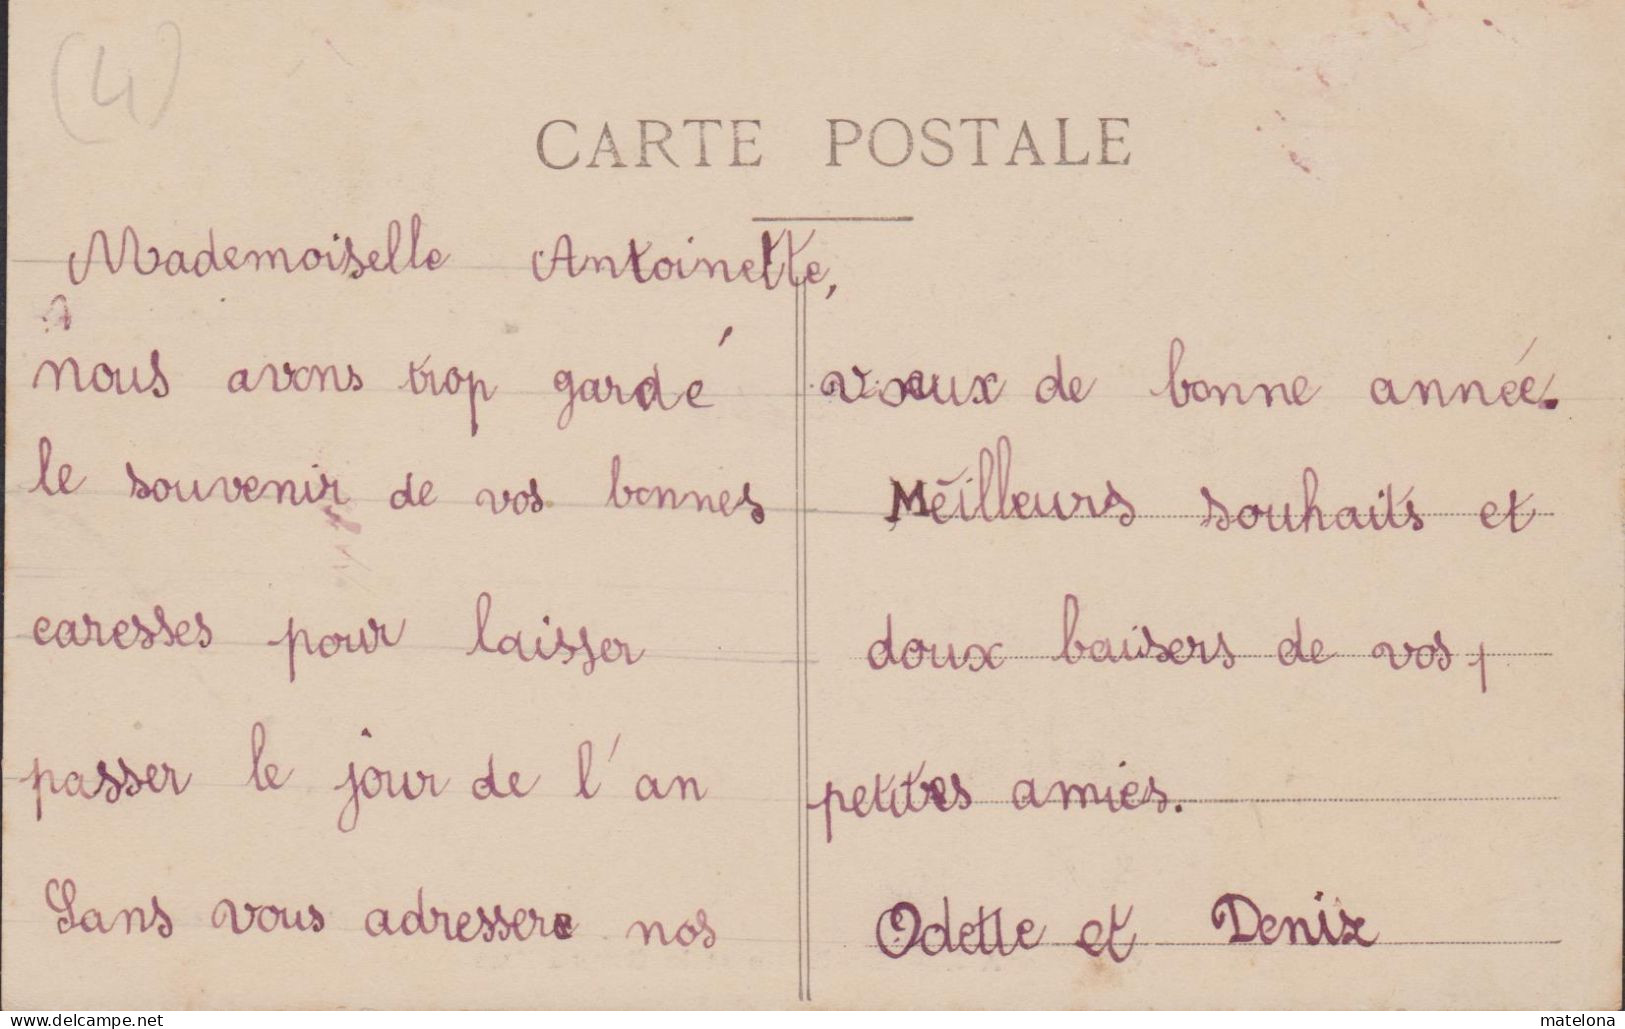 (4)
CARTE POSTALE
Mademoiselle Antoinette,
nous avons trop gardé
le souvenir de vos bonnes
caresses pour laisser
passer le jour de l'an
Sans vous adresser nos
vœux de bonne année.
Meilleurs souhaits et
doux baisers de vos
petites amies.
Odette et Denix
delcampe.net
matelona